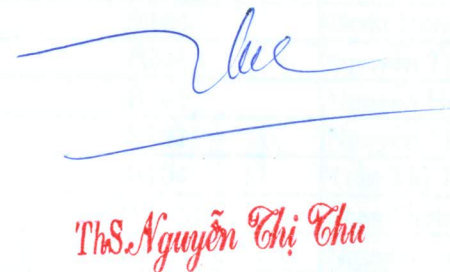 Thu
ThS.Nguyễn Thị Thu